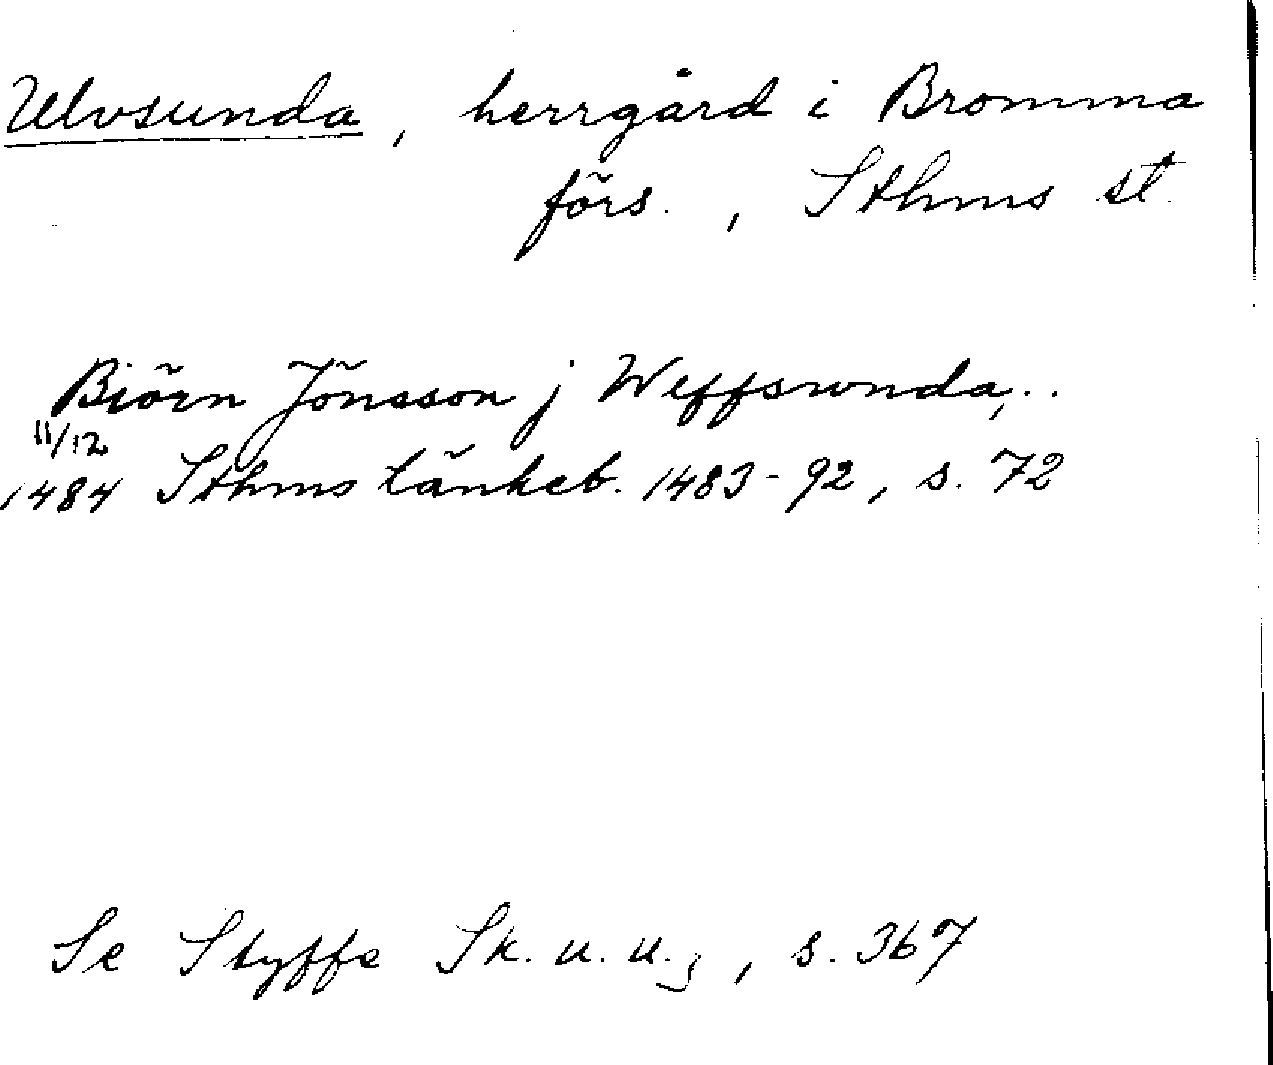 Ulvsunda, herrgård i Bromma
förs., Sthms st.
Biörn Jönsson j Weffswnda,..
11/12
1484 Sthms tänkeb. 1483-92, s. 72
Se Styffe Sk. u. u., s. 367